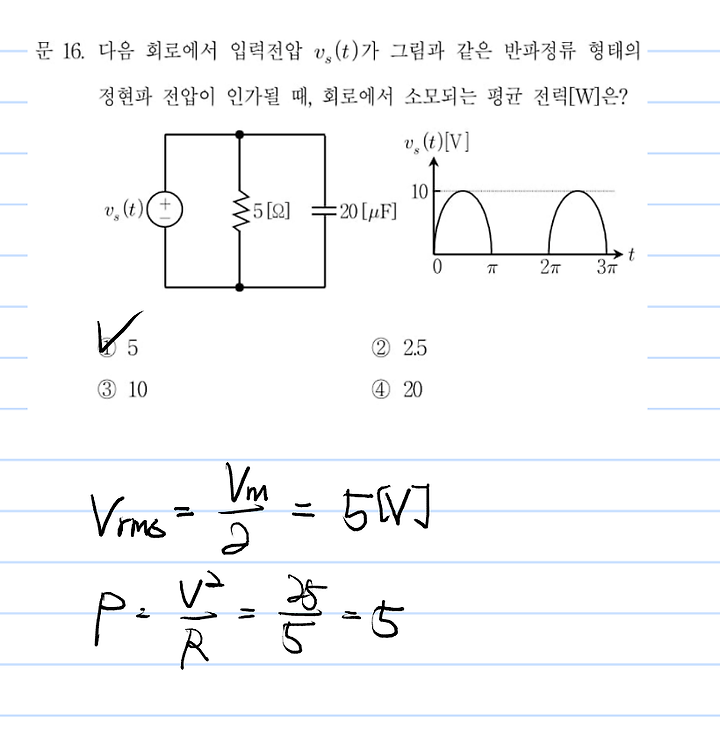 문 16. 다음 회로에서 입력전압 vₛ(t)가 그림과 같은 반파정류 형태의
정현파 전압이 인가될 때, 회로에서 소모되는 평균 전력[W]은?
vₛ(t)[V]
10
vₛ(t) + − 5[Ω] 20[μF]
0 π 2π 3π t
① 5 ② 2.5
③ 10 ④ 20
Vrms = Vm/2 = 5[V]
P = V²/R = 25/5 = 5